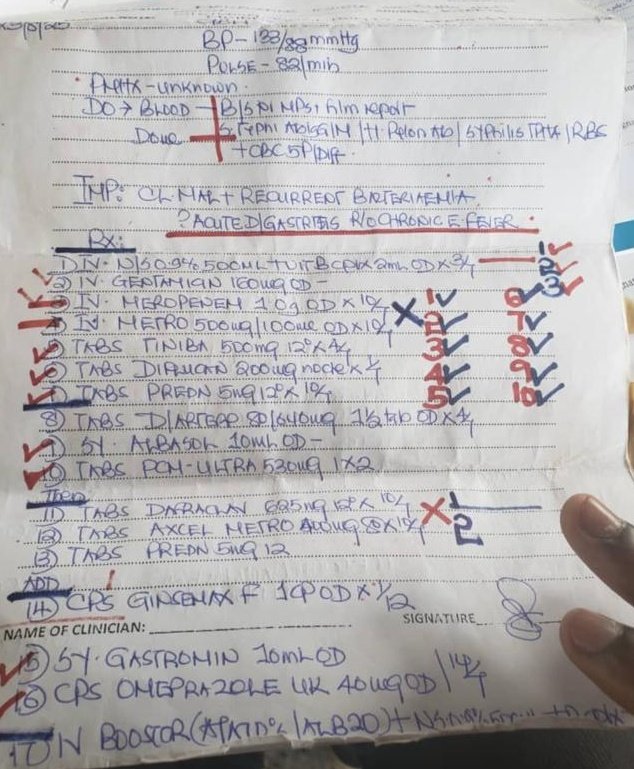 BP - 138/88 mmHg
PULSE - 82/min
PMHX - unknown.
DO → BLOOD - B/S for MPs + film report
Done S. Typhi Ab IgG/M / H. Pylori Ab / Syphilis TPHA / RBS
+ CBC 5P/Diff
IMP: CL MAL + RECURRENT BACTERIAEMIA.
? ACUTE D/GASTRITIS R/O CHRONIC E. FEVER.
Rx:
1) IV. N/S 0.9% 500ML + VIT B cplx 2ml OD x 3/7
1 2 3
2) IV. GENTAMICIN 160mg OD -
3) IV. MEROPENEM 1.0g OD x 10/7
4) IV. METRO 500mg/100ml OD x 10/7
X 1 2 3 4 5 6 7 8 9 10
5) TABS TINIBA 500mg 12° x 4/7
6) TABS 200mg nocte x 1/7
7) TABS PREDN 5mg 12° x 10/7
8) TABS D/ARTEPP 80/640mg 1½ tab OD x 4/7
9) SY. ALBASOL 10ml OD -
10) TABS PCM-ULTRA 530mg 1x2
Then
11) TABS 625mg 12° x 10/7
12) TABS AXCEL METRO 400mg 8° x 10/7
X 1 2
13) TABS PREDN 5mg 12
ADD
14) CPS GINSEMAX F 1CP OD x 1/12
NAME OF CLINICIAN: SIGNATURE
15) SY. GASTROMIN 10ml OD
16) CPS OMEPRAZOLE UK 40mg OD | 14/7
17) IV BOOSTOR